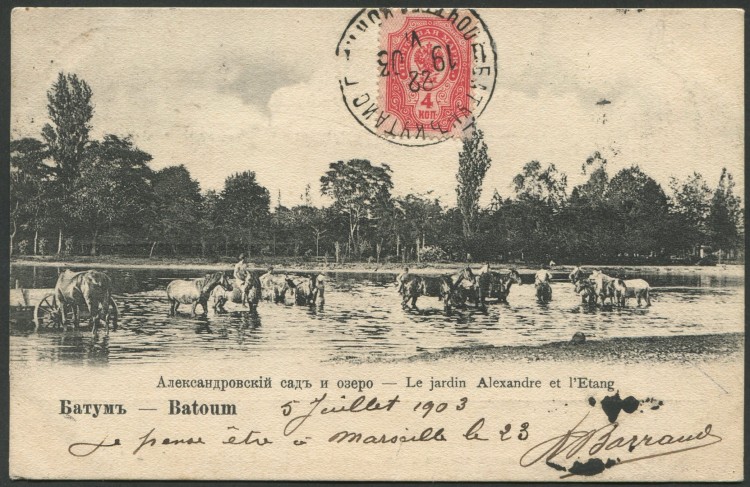 4
КОП.
22
VI
19 03
Александровскій садъ и озеро — Le jardin Alexandre et l'Etang
Батумъ — Batoum
5 Juillet 1903
Je pense être à Marseille le 23 Barraud